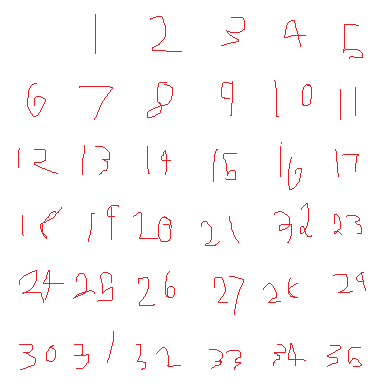 1 2 3 4 5
6 7 8 9 10 11
12 13 14 15 16 17
18 19 20 21 22 23
24 25 26 27 28 29
30 31 32 33 34 35